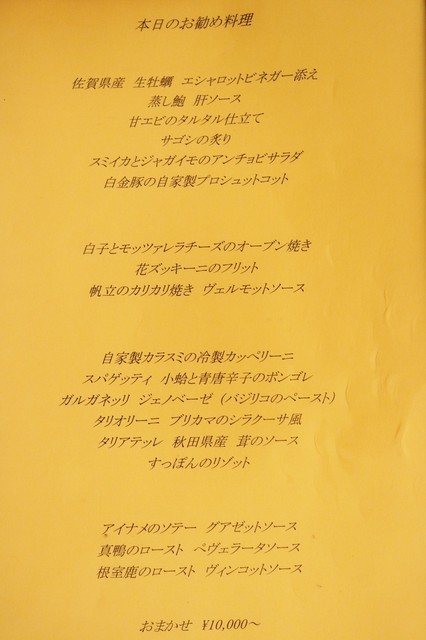 本日のお勧め料理
佐賀県産 生牡蠣 エシャロットビネガー添え
蒸し鮑 肝ソース
甘エビのタルタル仕立て
サゴシの炙り
スミイカとジャガイモのアンチョビサラダ
白金豚の自家製プロシュットコット
白子とモッツァレラチーズのオーブン焼き
花ズッキーニのフリット
帆立のカリカリ焼き ヴェルモットソース
自家製カラスミの冷製カッペリーニ
スパゲッティ 小蛤と青唐辛子のボンゴレ
ガルガネッリ ジェノベーゼ （バジリコのペースト）
タリオリーニ ブリカマのシラクーサ風
タリアテッレ 秋田県産 茸のソース
すっぽんのリゾット
アイナメのソテー グアゼットソース
真鴨のロースト ペヴェラータソース
根室鹿のロースト ヴィンコットソース
おまかせ ¥10,000～